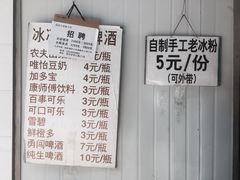 冰
啤酒
招聘
农夫
元/瓶
唯怡豆奶 4元/瓶
加多宝 4元/瓶
康师傅饮料 3元/瓶
百事可乐 3元/瓶
可口可乐 3元/瓶
雪碧 3元/瓶
鲜橙多 3元/瓶
勇闯啤酒 7元/瓶
纯生啤酒 10元/瓶
自制手工老冰粉
5元/份
(可外带)